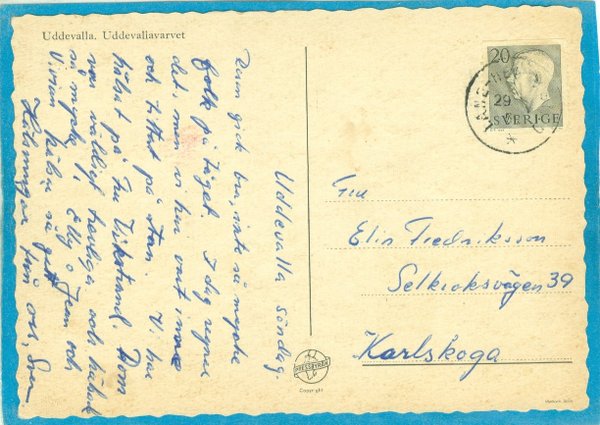 Uddevalla. Uddevallavarvet
Uddevalla söndag.
Resan gick bra, inte så mycke
folk på tåget. I dag regnar
det, men vi har varit inne
och tittat på stan. Vi har
hälsat på Fru Vikstrand. Dom
var väldigt trevliga och hälsade
så mycke. Elly o Jean och
Vivian hälsar så gott
Hälsningar från oss, Sven
20
29
SVERIGE
Fru
Elin Fredriksson
Selkroksvägen 39
Karlskoga
PRESSBYRÅN
Copyright